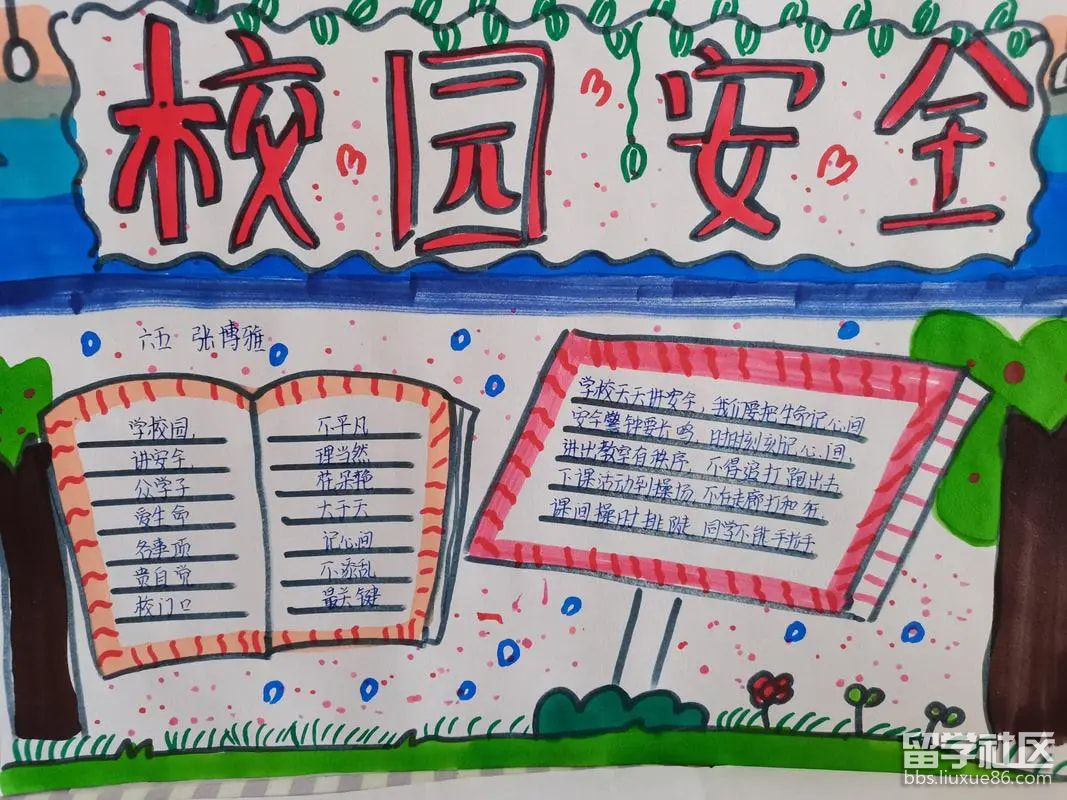 校园安全
六五 张博雅
学校园,
讲安全,
公学子
爱生命
务事项
贵自觉
校门口
不平凡
理当然
花朵艳
大于天
记心间
不添乱
最关键
学校天天讲安全,我们要把生命记心间
安全警钟要长鸣,时时刻刻记心间,
进出教室有秩序,不得追打跑出去
下课活动到操场 不在走廊打和
课间操时排队 同学不能手拉手
留学社区
bbs.liuxue86.com